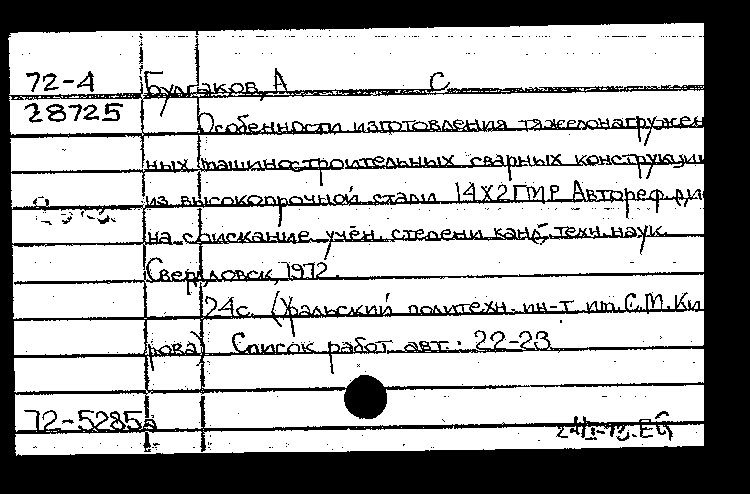 72-4 Булгаков, А С
28725
Особенности изготовления тяжелонагружен
ных машиностроительных сварных конструкций
из высокопрочной стали 14Х2ГМР Автореф. дис
на соискание учён. степени канд. техн. наук.
Свердловск, 1972.
24с. (Уральский политехн. ин-т им. С.М. Ки
рова) Список работ авт.: 22-23
72-5285а